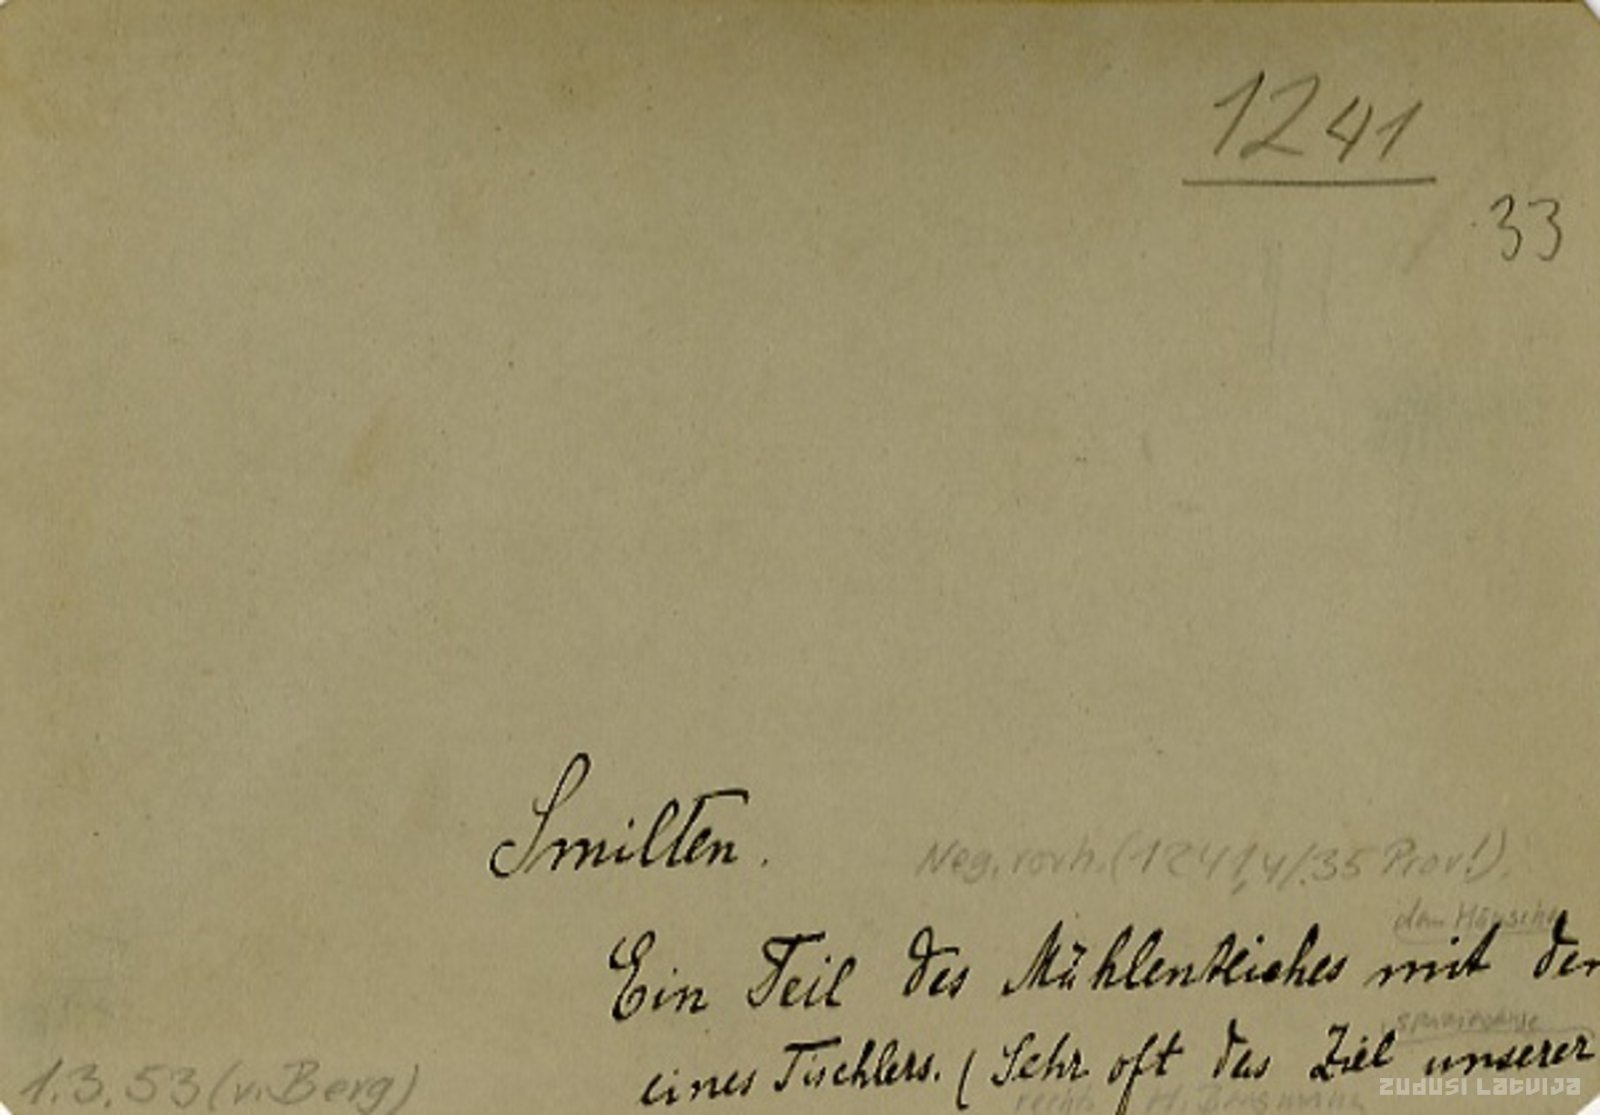 1241
33
Smilten.
Neg. vorh. (1241,4/.35 Prov!).
Ein Teil des Mühlenteiches mit dem
eines Tischlers. (Sehr oft das Ziel unserer
1.3.53 (v. Berg)
rechts H. Bergmann
ZUDUSI LATVIJA